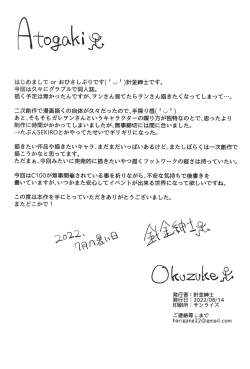 Atogaki
はじめまして or おひさしぶりです( ╹◡╹)針金紳士です。
今回は久々にグラブルで同人誌。
描く予定は無かったんですが、サンさん見てたらサンさん描きたくなってしまって…。
二次創作で漫画描くの自体が久々だったので、手探り感( ╹◡╹)
あと、そもそもガレサンさんというキャラクターの喋り方が独特なのとで、思ったより
制作に時間がかかってしまいましたが、無事締切には間に合いました。
→たぶんSEKIROとかやってたせいでギリギリになった。
描きたい作品や描きたいキャラ、まだまだいっぱいあるけど、またしばらくは一次創作で
描こうかなと思ってます。
ただまぁ、今回みたいに突発的に描きたいやつ描くフットワークの軽さは持っていたい。
今回はC100が無事開催されている事を祈りながら、不安な気持ちで後書きを
書いていますが、いつかまた安心してイベントが出来る世界になって欲しいですね。
この度は本作を手にとっていただきありがとうございました。
またどこかで！
2022.
7月の暑い日
針金紳士
Okuzuke
発行者：針金紳士
発行日：2022/08/14
印刷所：サンライズ
ご連絡等↓まで
harigane22@gmail.com